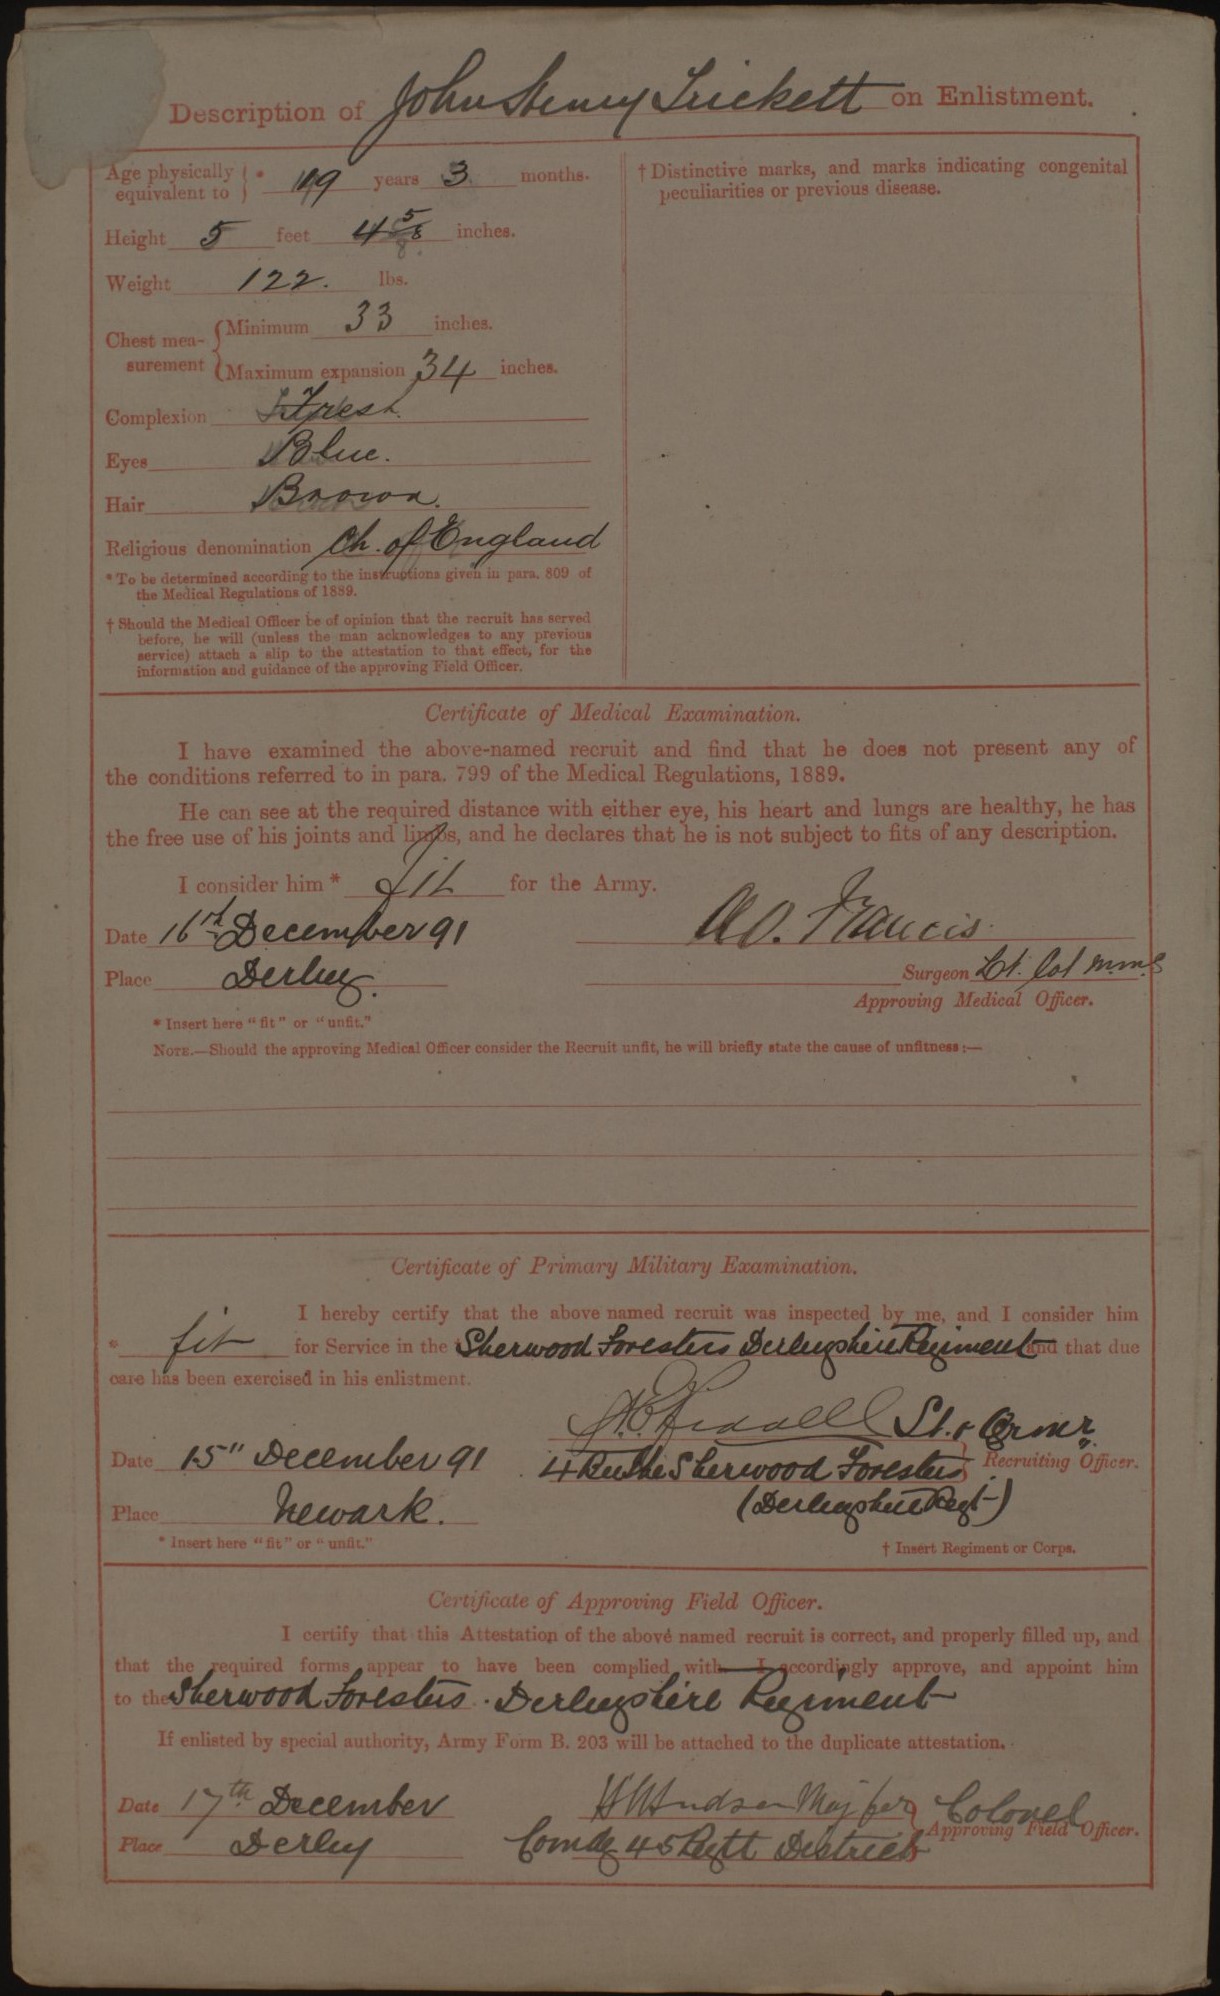 Description of John Henry Trickett on Enlistment.
Age physically equivalent to * 19 years 3 months.
Height 5 feet 4 5/8 inches.
Weight 122. lbs.
Chest mea-surement Minimum 33 inches.
Maximum expansion 34 inches.
Complexion Fresh.
Eyes Blue.
Hair Brown.
Religious denomination Ch. of England
* To be determined according to the instructions given in para. 809 of
the Medical Regulations of 1889.
† Should the Medical Officer be of opinion that the recruit has served
before, he will (unless the man acknowledges to any previous
service) attach a slip to the attestation to that effect, for the
information and guidance of the approving Field Officer.
† Distinctive marks, and marks indicating congenital
peculiarities or previous disease.
Certificate of Medical Examination.
I have examined the above-named recruit and find that he does not present any of
the conditions referred to in para. 799 of the Medical Regulations, 1889.
He can see at the required distance with either eye, his heart and lungs are healthy, he has
the free use of his joints and limbs, and he declares that he is not subject to fits of any description.
I consider him * fit for the Army.
Date 16th December 91 Francis
Place Derby. Surgeon Lt. Col
Approving Medical Officer.
* Insert here "fit" or "unfit."
NOTE.—Should the approving Medical Officer consider the Recruit unfit, he will briefly state the cause of unfitness:—
Certificate of Primary Military Examination.
I hereby certify that the above named recruit was inspected by me, and I consider him
* fit for Service in the Sherwood Foresters Derbyshire Regiment and that due
care has been exercised in his enlistment.
Date 15" December 91 4 Sherwood Foresters Recruiting Officer.
Place Newark. (Derbyshire Regt)
* Insert here "fit" or "unfit." † Insert Regiment or Corps.
Certificate of Approving Field Officer.
I certify that this Attestation of the above named recruit is correct, and properly filled up, and
that the required forms appear to have been complied with. I accordingly approve, and appoint him
to the Sherwood Foresters. Derbyshire Regiment
If enlisted by special authority, Army Form B. 203 will be attached to the duplicate attestation.
Date 17th December Hudson Maj for Colonel
Approving Field Officer.
Place Derby Comdg 45 Regtl District